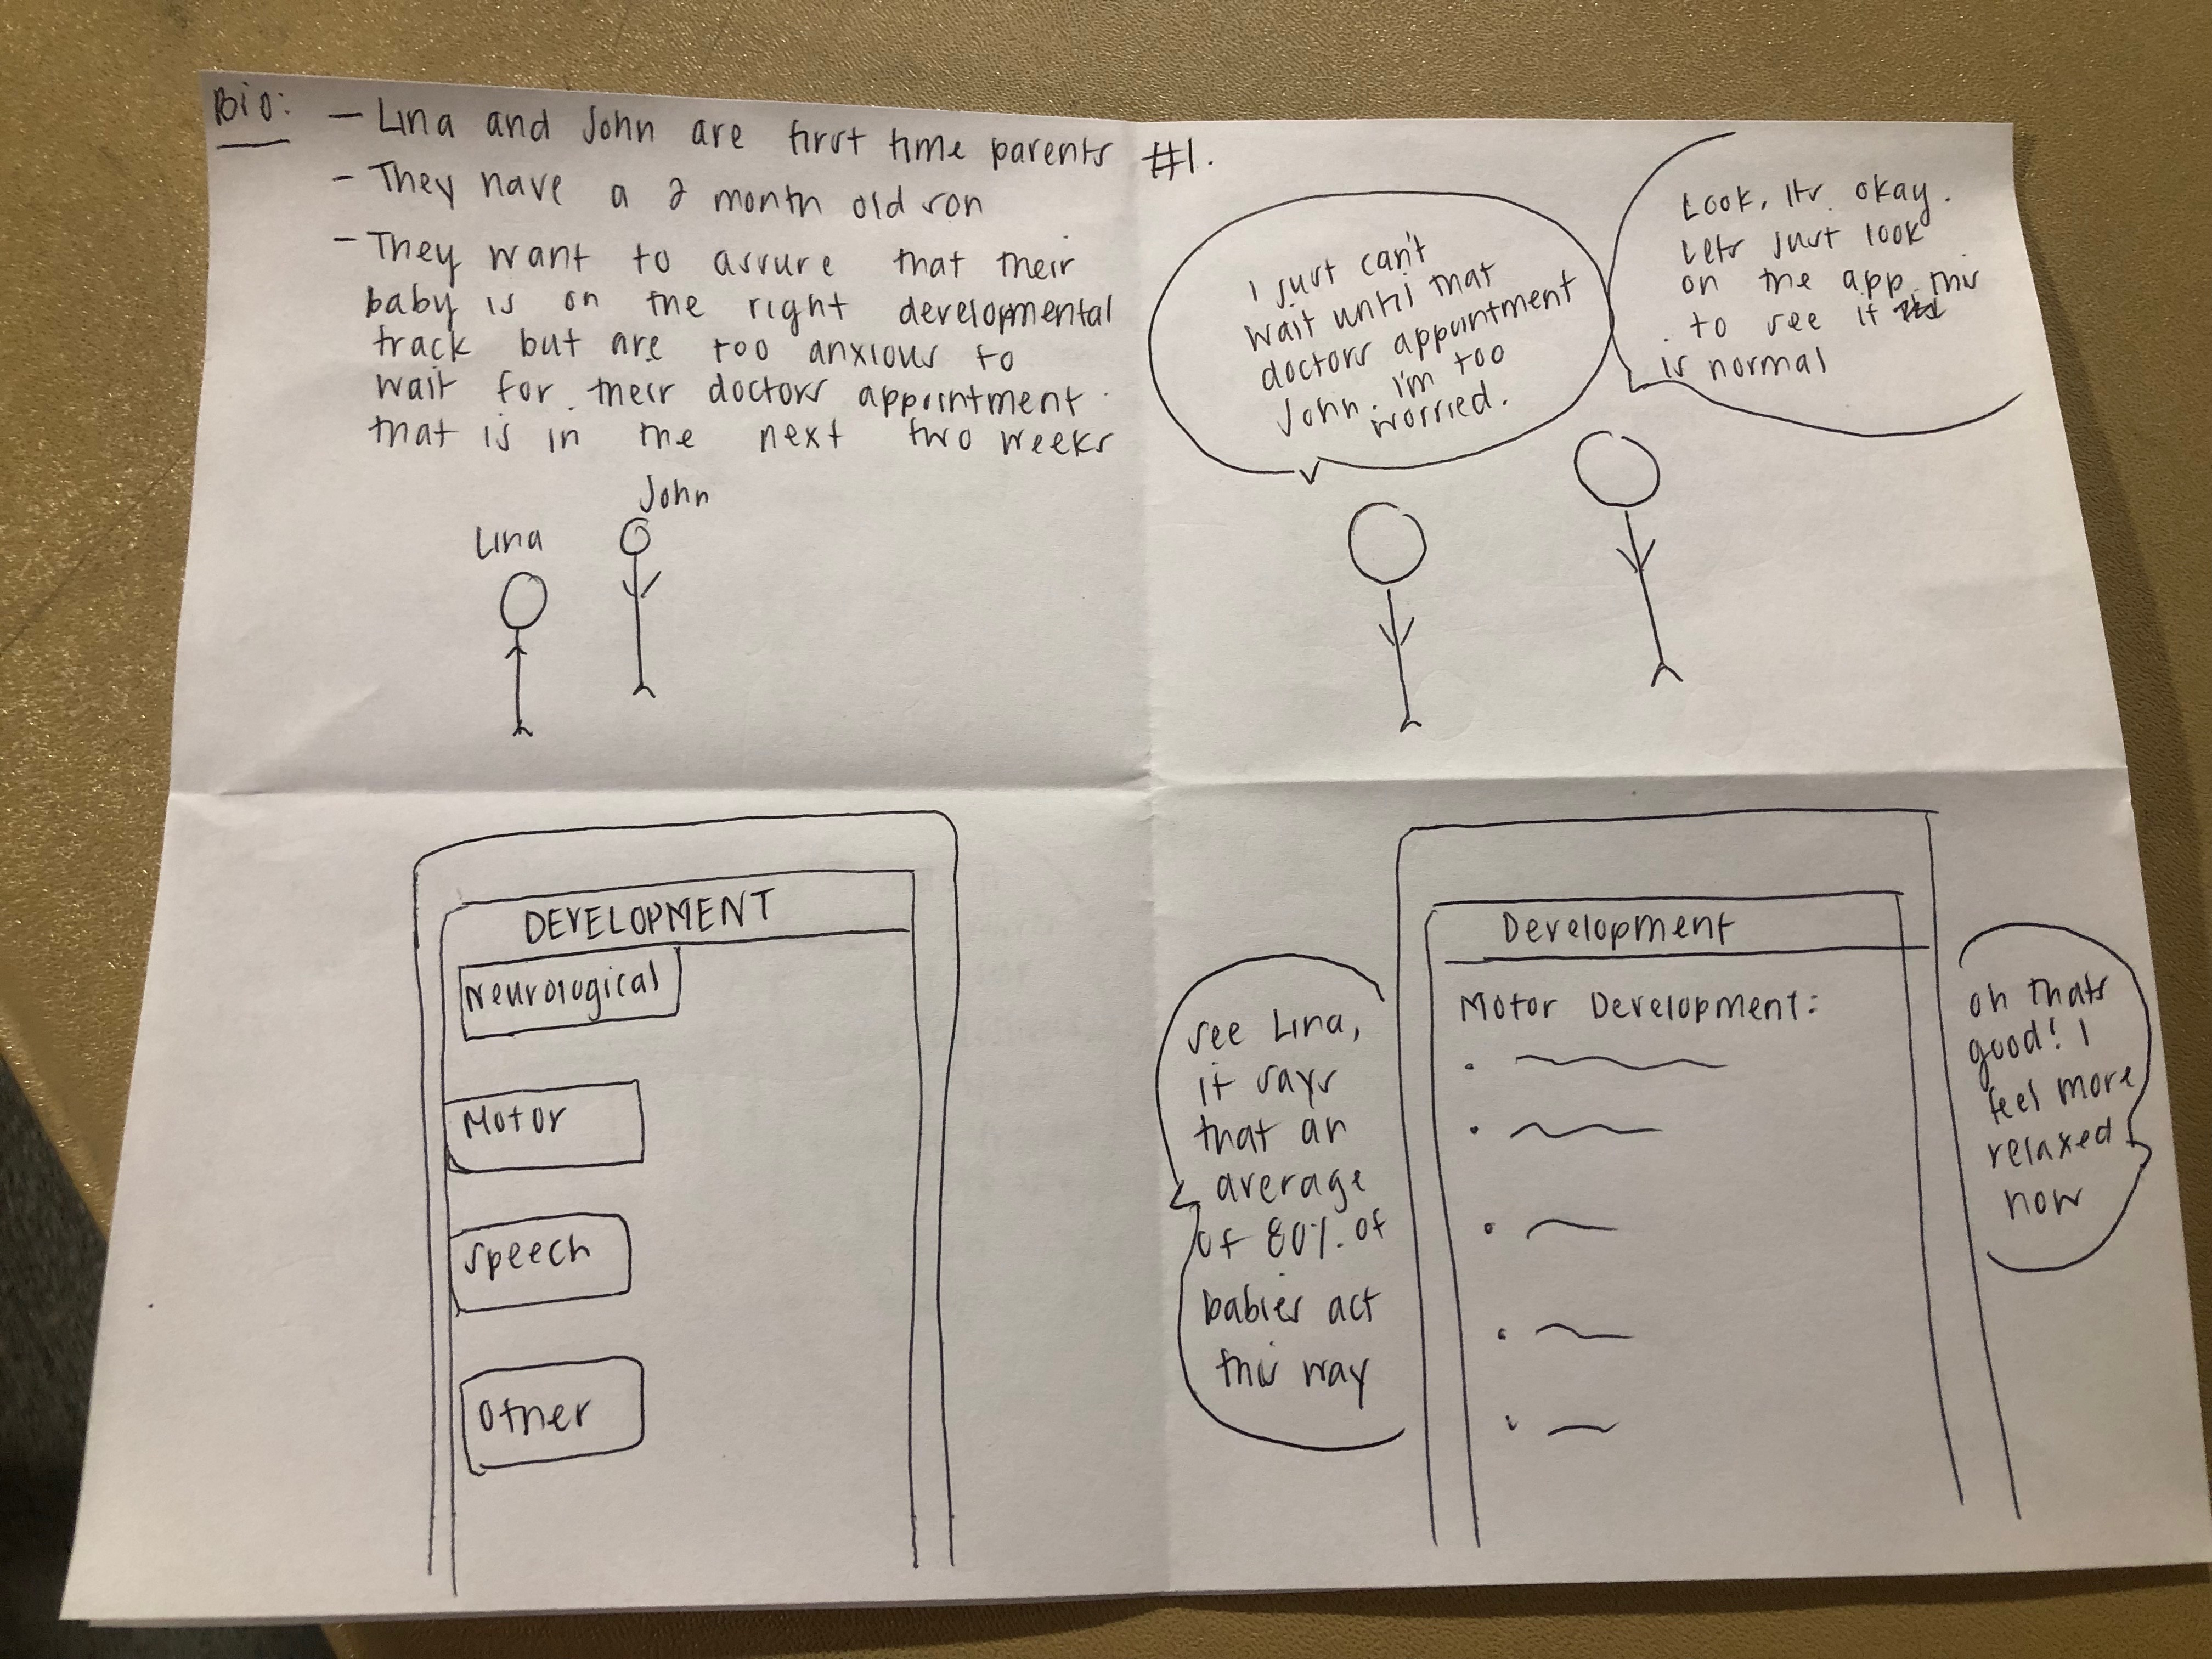 Bio: - Lina and John are first time parents
- They have a 2 month old son
- They want to assure that their
baby is on the right developmental
track but are too anxious to
wait for their doctors appointment
that is in the next two weeks
Lina
John
#1.
I just can't
wait until that
doctors appointment
John. I'm too
worried.
Look, its okay.
Lets just look
on the app
to see if this
is normal
DEVELOPMENT
Neurological
Motor
Speech
Other
See Lina,
it says
that an
average
of 80% of
babies act
this way
Development
Motor Development:
oh thats
good! I
feel more
relaxed
now